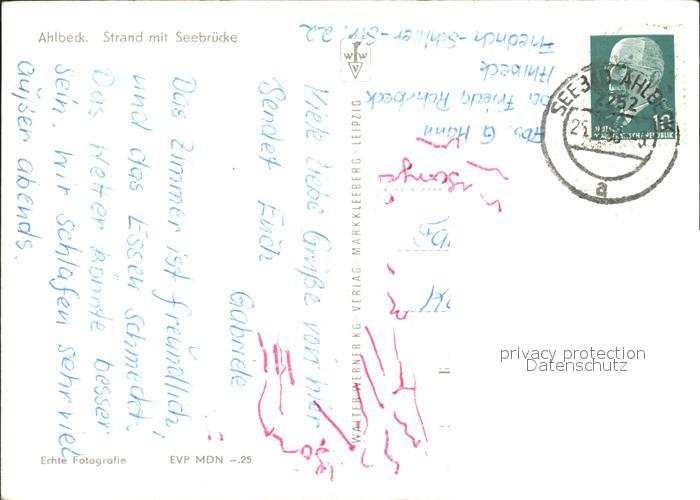 Ahlbeck. Strand mit Seebrücke
Viele liebe Grüße von hier
Sendet Euch
Gabriele
Das Zimmer ist freundlich,
und das Essen schmeckt.
Das Wetter könnte besser
sein. Wir schlafen sehr viel
außer abends.
Echte Fotografie EVP MDN –.25
WALTER WERNER KG · VERLAG · MARKKLEEBERG · LEIPZIG
Abs. G. Hann
bei Friedr. Rohrbeck
Ahlbeck
Friedrich-Schiller-Str. 22
SEEBAD AHLBECK
2252
a
10
privacy protection
Datenschutz